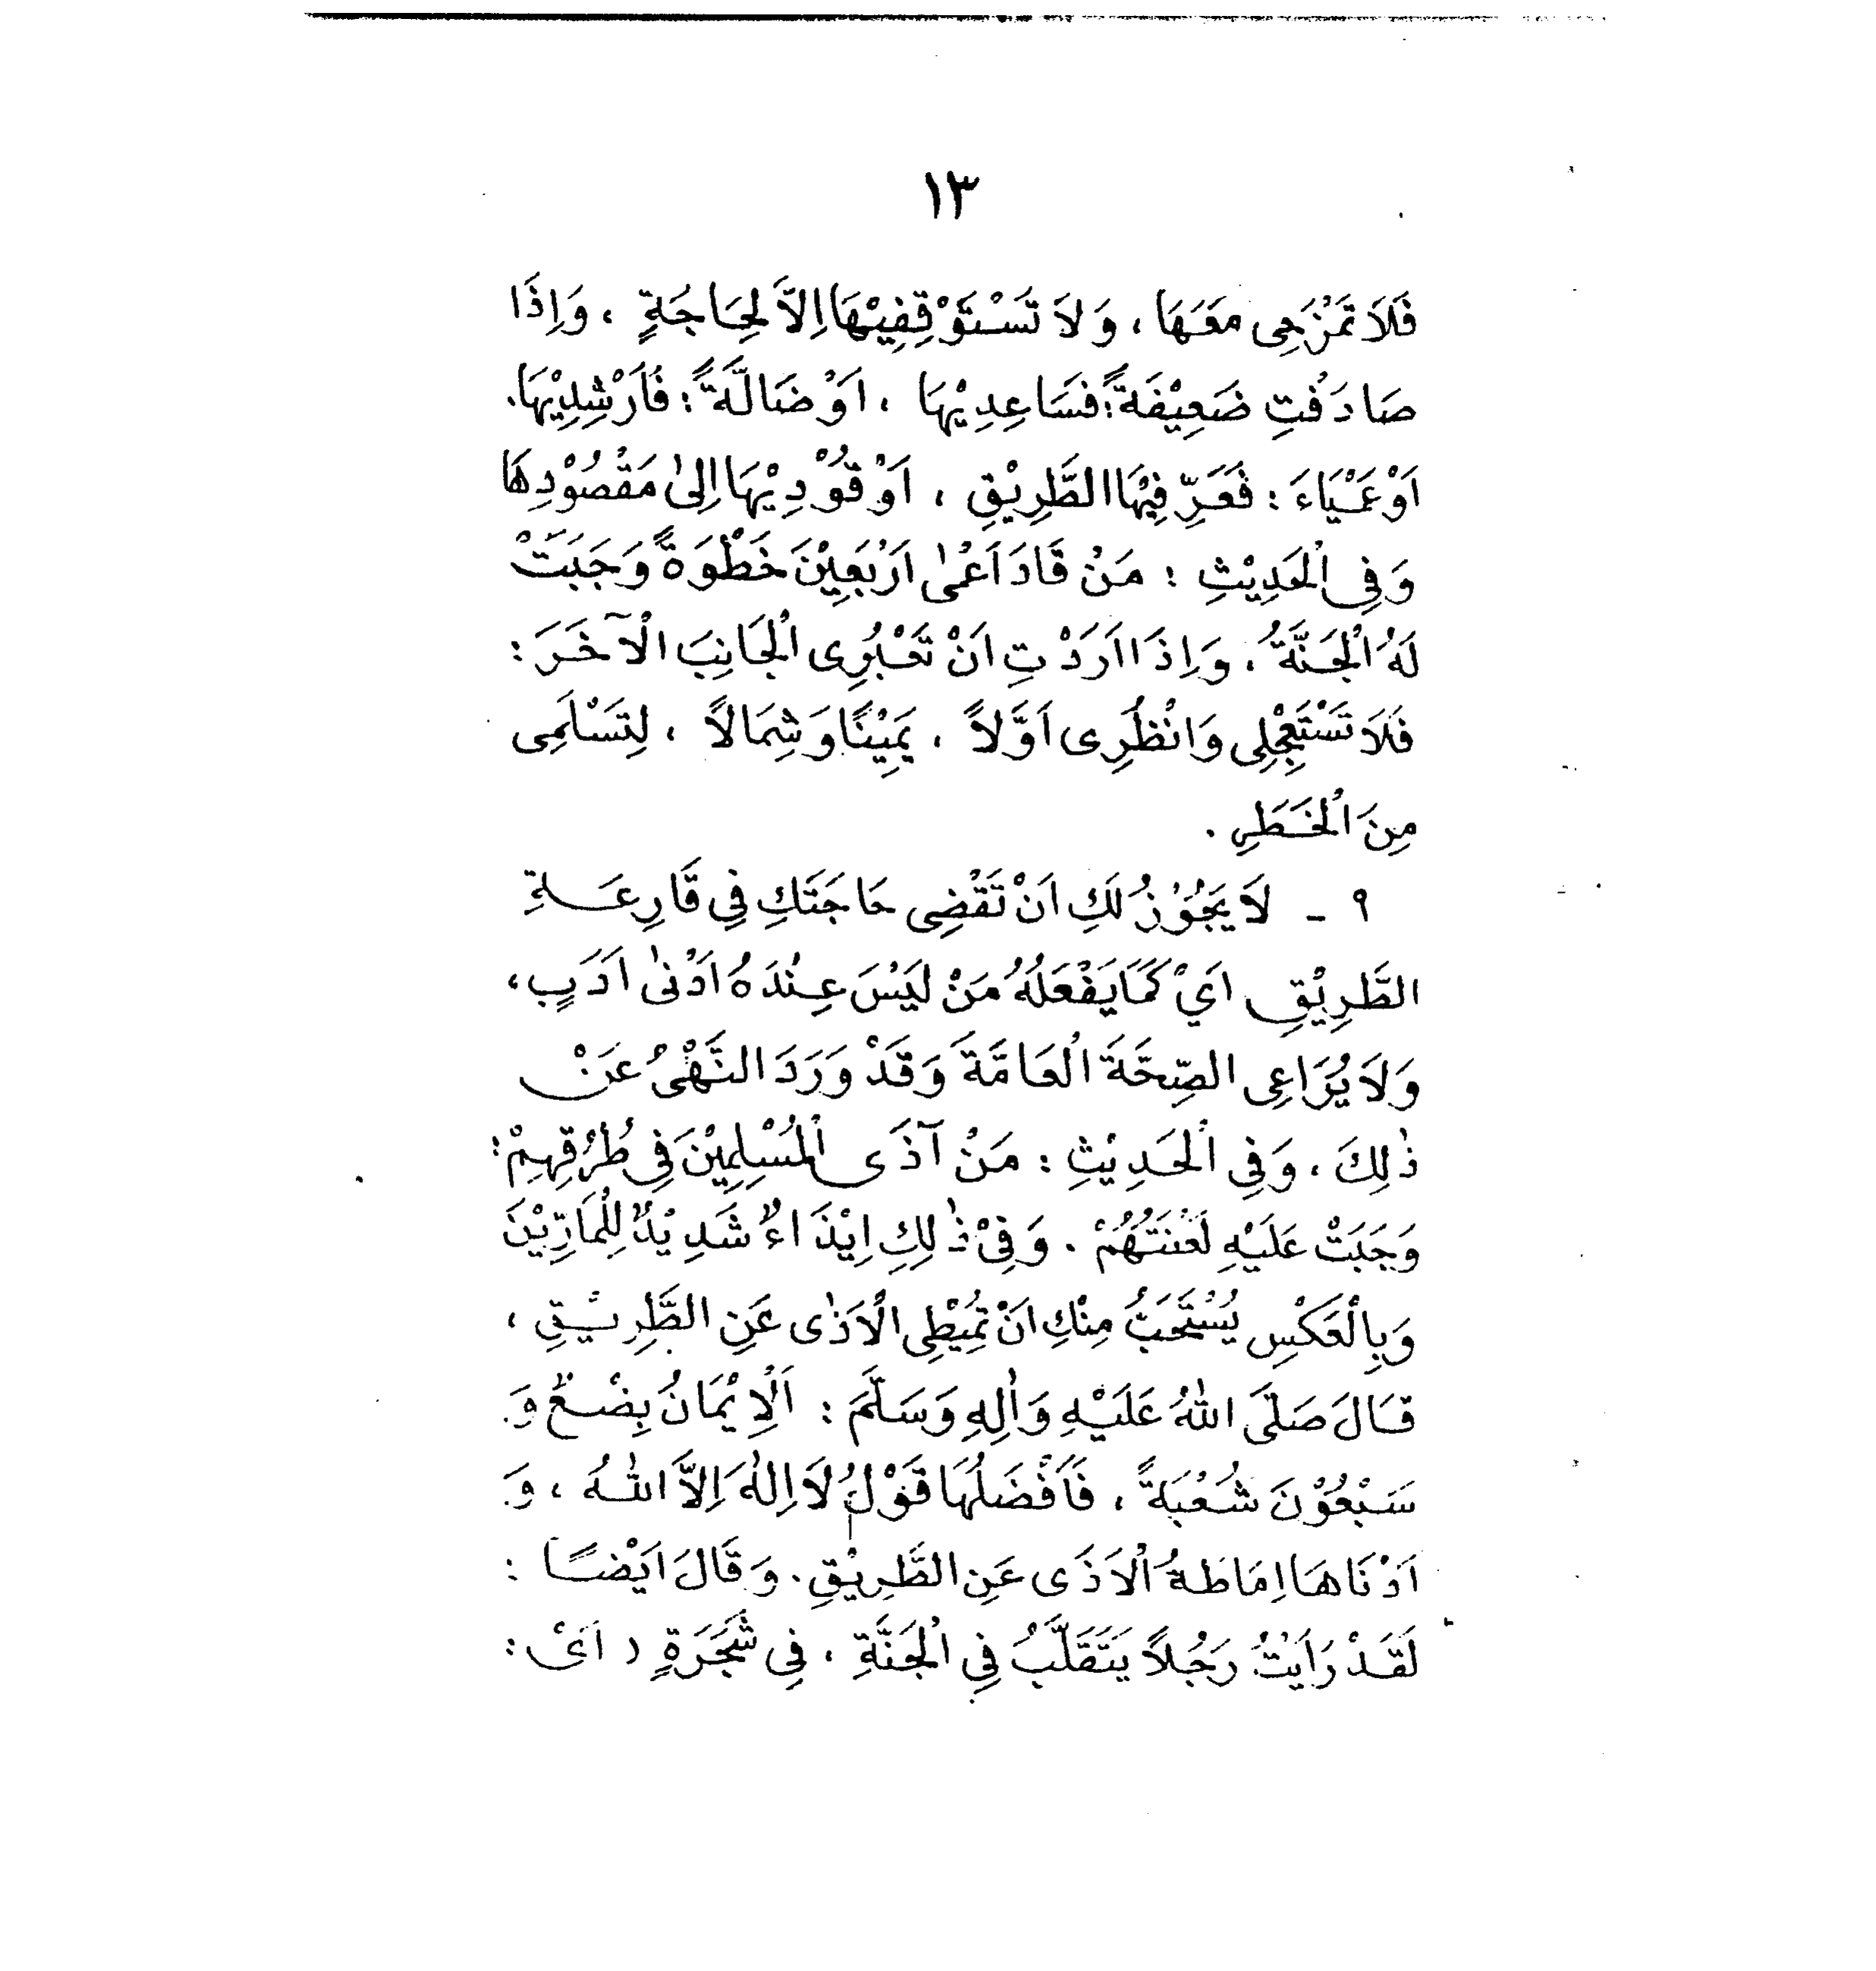 ١٣
فَلَا تَمْزَحِى مَعَهَا ، وَلَا تَسْتَوْقِفِيْهَا اِلَّا لِحَاجَةٍ ، وَاِذَا
صَادَفْتِ ضَعِيْفَةً : فَسَاعِدِيْهَا ، اَوْ ضَالَّةً : فَاَرْشِدِيْهَا .
اَوْ عَمْيَاءَ : فَعَرِّفِيْهَا الطَّرِيْقِ ، اَوْ قُوْدِيْهَا اِلىٰ مَقْصُوْدِهَا
وَفِى الْحَدِيْثِ : مَنْ قَادَ اَعْمىٰ اَرْبَعِيْنَ خَطْوَةً وَجَبَتْ
لَهُ الْجَنَّةُ ، وَاِذَا اَرَدْتِ اَنْ تَعْبُرِى الْجَانِبَ الْآخَرَ :
فَلَا تَسْتَعْجِلِى وَانْظُرِى اَوَّلاً ، يَمِيْنًا وَشِمَالاً ، لِتَسْلَمِى
مِنَ الْخَطَرِ .
٩ - لَا يَجُوْزُ لَكِ اَنْ تَقْضِى حَاجَتَكِ فِى قَارِعَةِ
الطَّرِيْقِ اَيْ كَمَا يَفْعَلُهُ مَنْ لَيْسَ عِنْدَهُ اَدْنىٰ اَدَبٍ ،
وَلَا يُرَاعِى الصِّحَّةَ الْعَامَّةَ وَقَدْ وَرَدَ النَّهْىُ عَنْ
ذٰلِكَ ، وَفِى الْحَدِيْثِ : مَنْ آذَى الْمُسْلِمِيْنَ فِى طُرُقِهِمْ :
وَجَبَتْ عَلَيْهِ لَعْنَتُهُمْ . وَفِىْ ذٰلِكِ اِيْذَاءٌ شَدِيْدٌ لِلْمَارِّيْنَ
وَبِالْعَكْسِ يُسْتَحَبُّ مِنْكِ اَنْ تُمِيْطِى الْاَذٰى عَنِ الطَّرِيْقِ ،
قَالَ صَلَّى اللهُ عَلَيْهِ وَاٰلِهِ وَسَلَّمَ : اَلْاِيْمَانُ بِضْعٌ وَ
سَبْعُوْنَ شُعْبَةً ، فَاَفْضَلُهَا قَوْلُ لَا اِلٰهَ اِلَّا اللهُ ، وَ
اَدْنَاهَا اِمَاطَةُ الْاَذَى عَنِ الطَّرِيْقِ . وَقَالَ اَيْضًا :
لَقَدْ رَاَيْتُ رَجُلاً يَتَقَلَّبُ فِى الْجَنَّةِ ، فِى شَجَرَةٍ ( اَىْ :